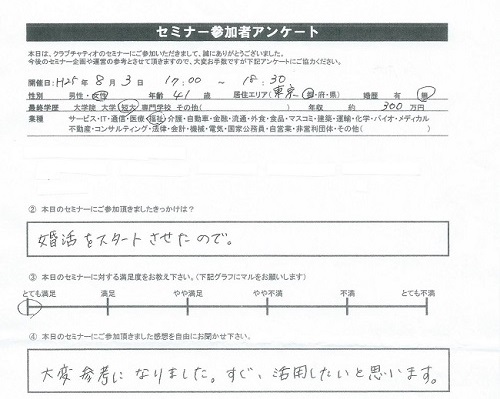 セミナー参加者アンケート
本日は、クラブチャティオのセミナーにご参加いただきまして、誠にありがとうございました。
今後のセミナー企画や運営の参考とさせて頂きますので、大変お手数ですが下記アンケートにご協力ください。
開催日: H25年 8月 3日 17:00 ~ 18:30
性別 男性・女性 年齢 41 歳 居住エリア(東京 都・府・県) 婚歴 有 無
最終学歴 大学院 大学 短大 専門学校 その他( ) 年収 約 300 万円
業種 サービス・IT・通信・医療・福祉・介護・自動車・金融・流通・外食・食品・マスコミ・建築・運輸・化学・バイオ・メディカル
不動産・コンサルティング・法律・会計・機械・電気・国家公務員・自営業・非営利団体・その他( )
② 本日のセミナーにご参加頂きましたきっかけは?
婚活をスタートさせたので。
③ 本日のセミナーに対する満足度をお教え下さい。(下記グラフにマルをお願いします)
とても満足 満足 やや満足 やや不満 不満 とても不満
④ 本日のセミナーにご参加頂きました感想を自由にお聞かせ下さい。
大変参考になりました。すぐ、活用したいと思います。